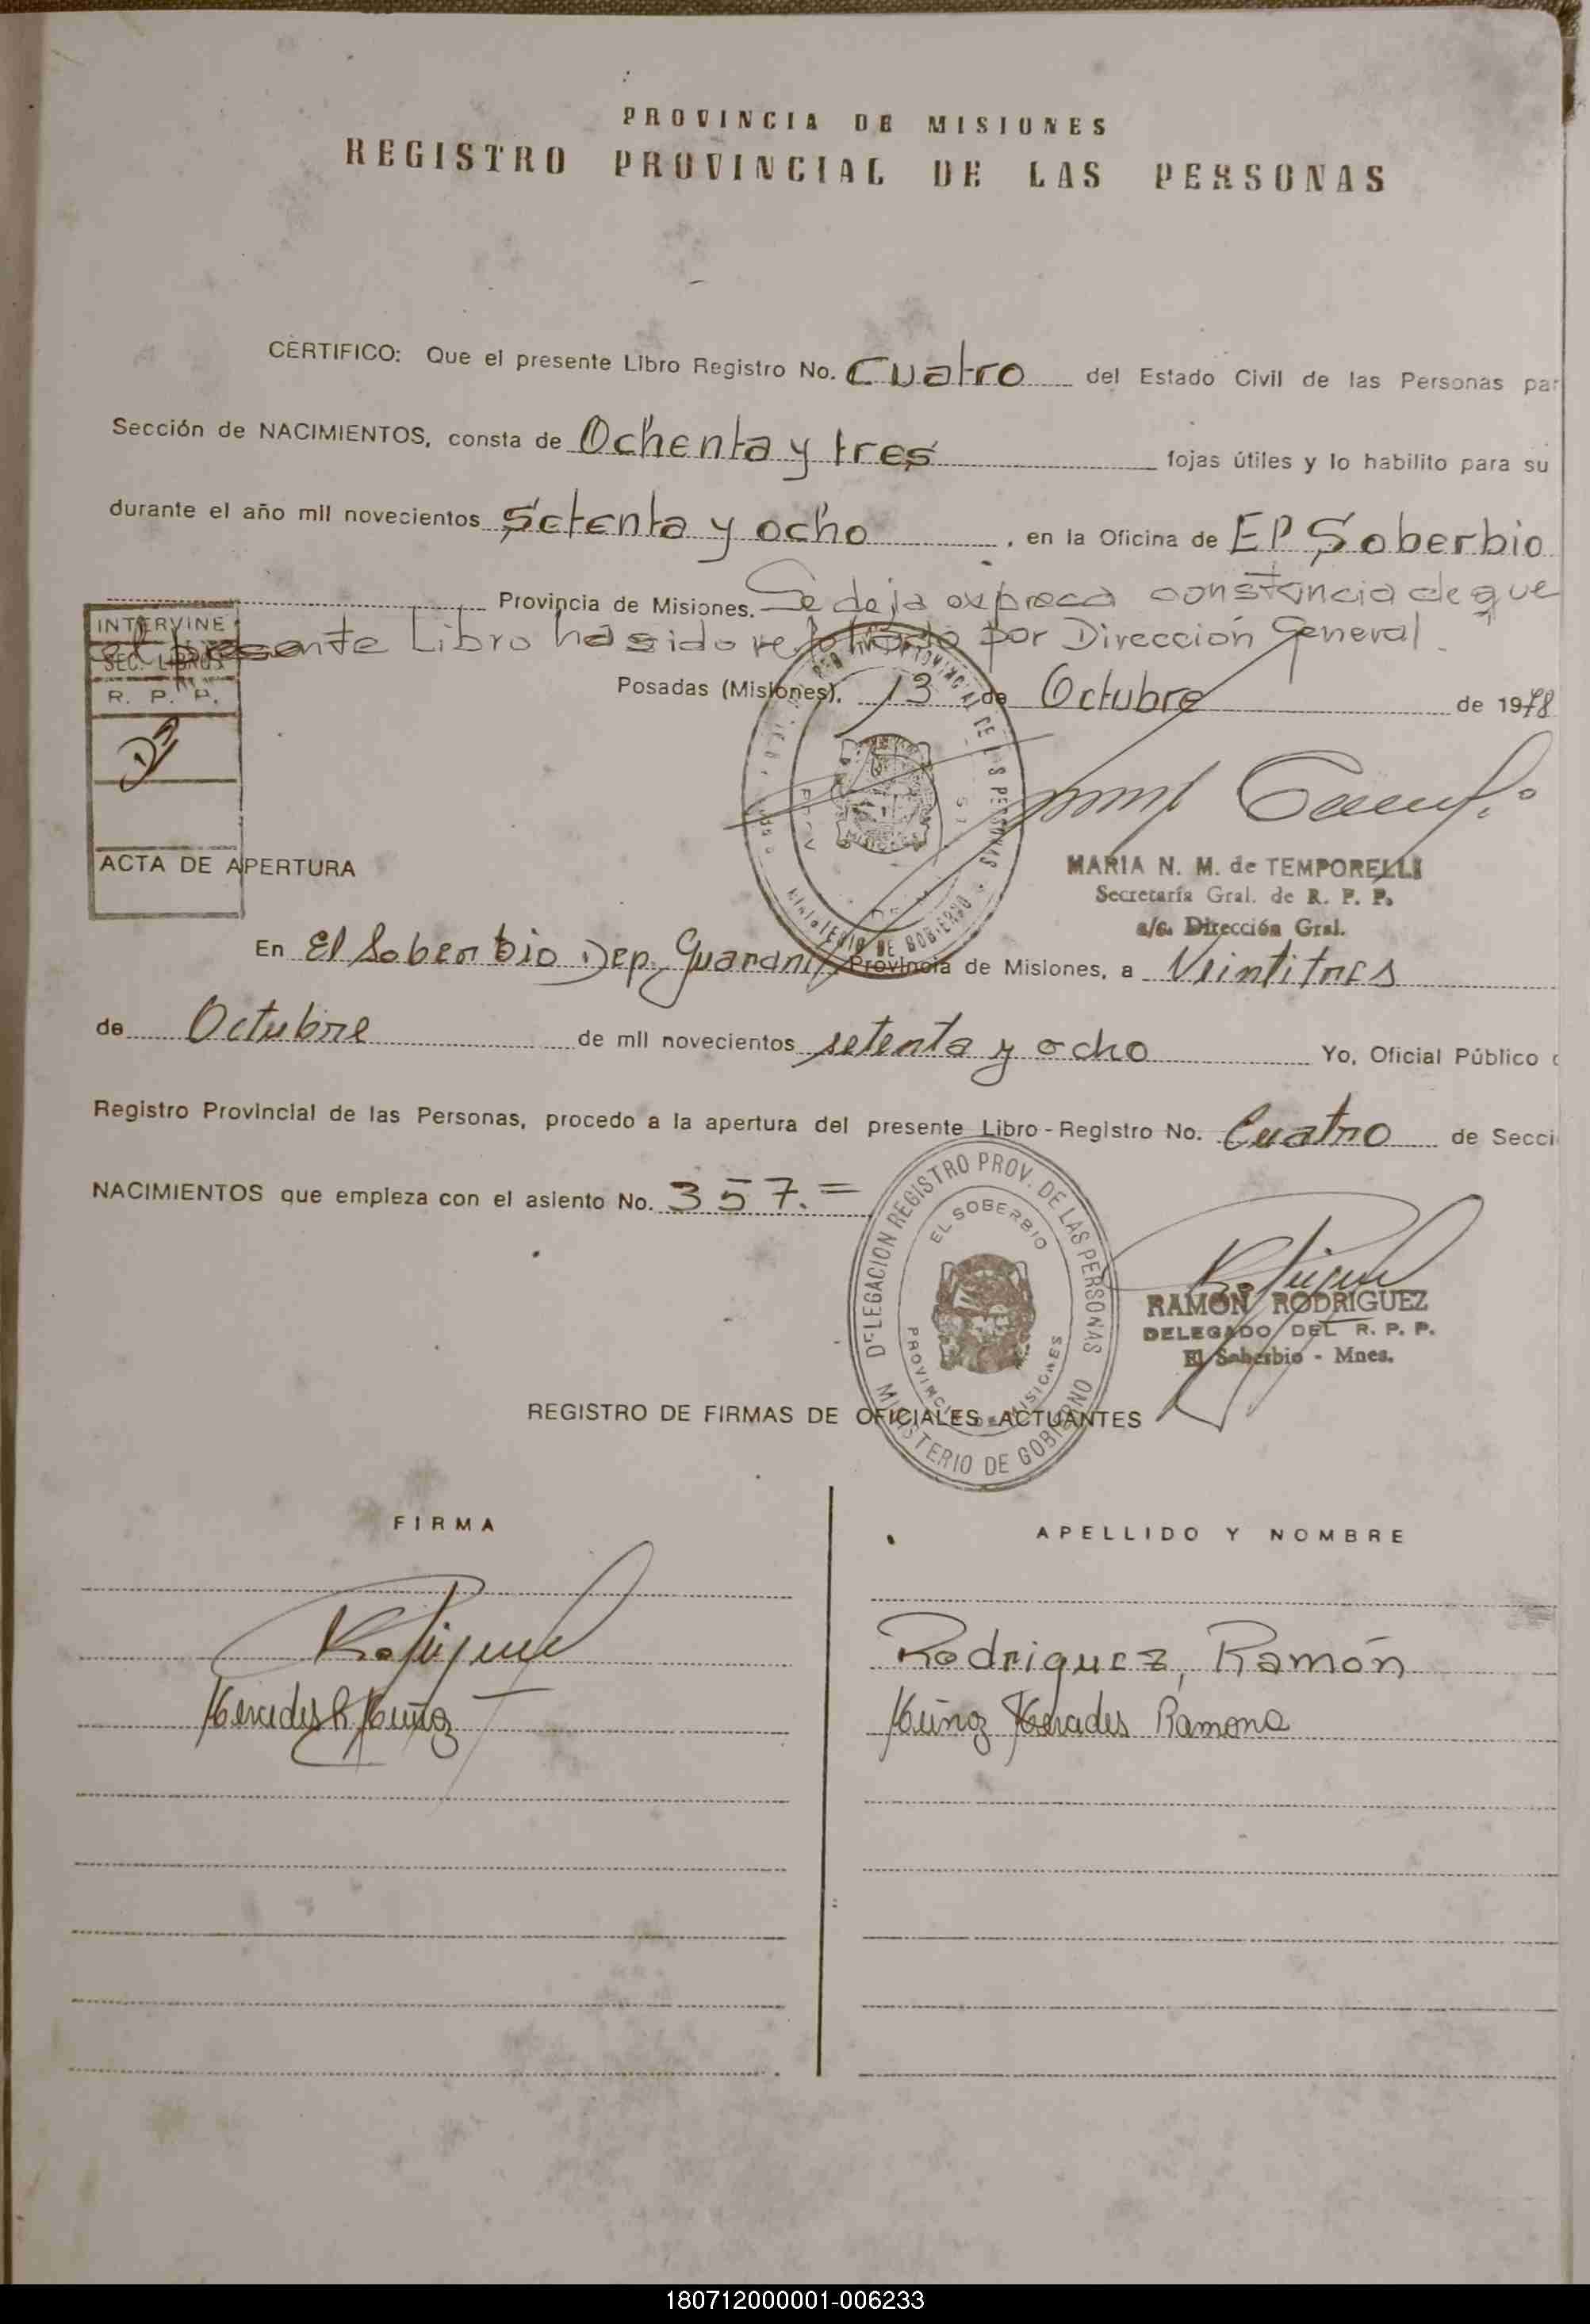 PROVINCIA DE MISIONES
REGISTRO PROVINCIAL DE LAS PERSONAS
CERTIFICO: Que el presente Libro Registro No. Cuatro del Estado Civil de las Personas par
Sección de NACIMIENTOS, consta de Ochenta y tres fojas útiles y lo habilito para su
durante el año mil novecientos Setenta y ocho, en la Oficina de El Soberbio
Provincia de Misiones. Se deja expresa constancia de que
INTERVINE
el presente Libro ha sido refoliado por Dirección General.
SEC. LIBROS
R. P. P.
Posadas (Misiones), 13 de Octubre de 1978
MARIA N. M. de TEMPORELLI
Secretaría Gral. de R. P. P.
a/c. Dirección Gral.
ACTA DE APERTURA
En El Soberbio Dep. Guaraní Provincia de Misiones, a Veintitres
de Octubre de mil novecientos setenta y ocho Yo, Oficial Público
Registro Provincial de las Personas, procedo a la apertura del presente Libro-Registro No. Cuatro de Secci
NACIMIENTOS que empieza con el asiento No. 357.=
DELEGACION REGISTRO PROV. DE LAS PERSONAS
EL SOBERBIO
PROVINCIA DE MISIONES
MINISTERIO DE GOBIERNO
RAMÓN RODRIGUEZ
DELEGADO DEL R. P. P.
El Soberbio - Mnes.
REGISTRO DE FIRMAS DE OFICIALES ACTUANTES
FIRMA APELLIDO Y NOMBRE
Rodriguez, Ramón
Mercedes R Muñoz Muñoz Mercedes Ramona
180712000001-006233